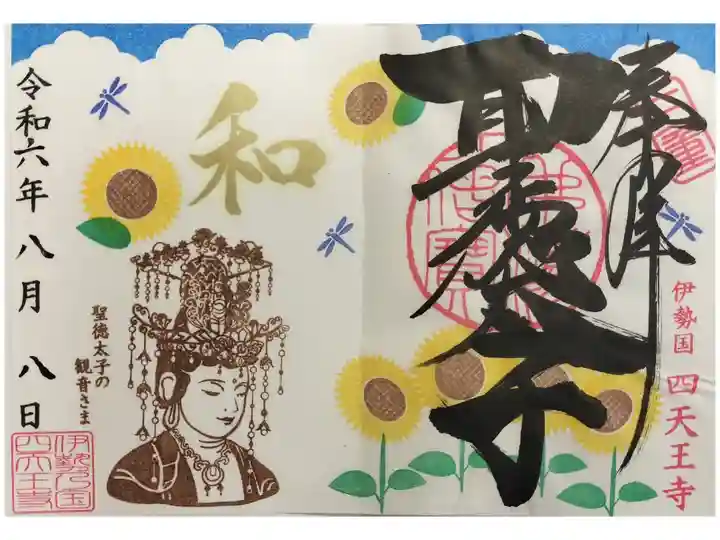 奉拝
聖徳太子
伊勢国 四天王寺
和
聖徳太子の
観音さま
令和六年八月八日
伊勢乃国
四天王寺